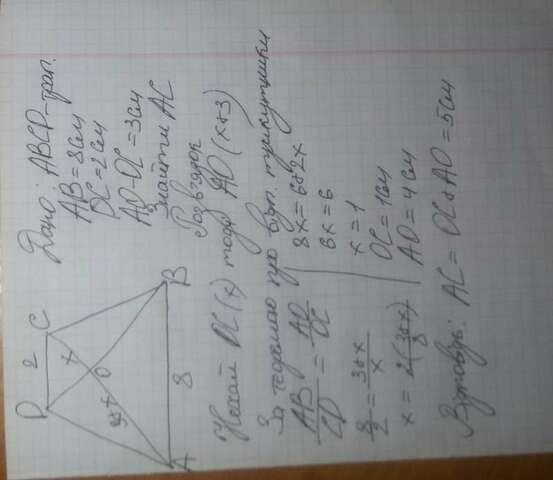 Дано: ABCD-трап.
AB=8см
DC=2см
AO-OC=3см
Знайти AC
D 2 C
x
3+x O
A 8 B
Розв'язок
Нехай OC(x) тоді AO(x+3)
За теоремою про відп. трикутники
AB/CD = AO/OC
8x=6+2x
8/2 = 3+x/x
6x=6
x = 2(3+x)/8
x=1
OC=1см
AO=4см
Відповідь: AC= OC+AO=5см